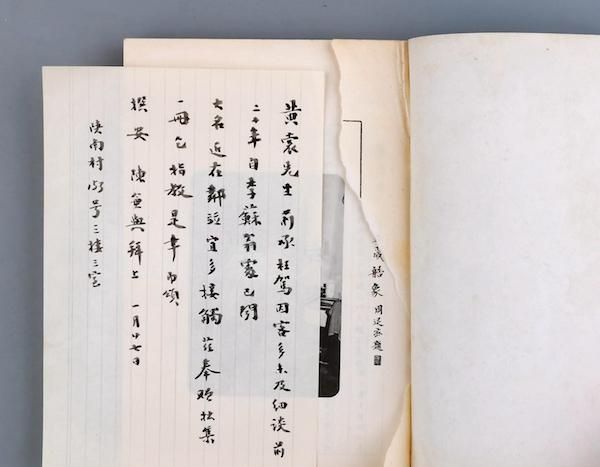 黄裳先生 前承枉駕因客多未及細談 前
二十年自李蘇翁處已聞
大名 近在鄰竝宜多接觸 茲奉贈拙集
一冊乞 指教是幸 即頌
撰安 陳兼與拜上 一月廿七日
陝南村153号三樓三室
歲 象 周退密題